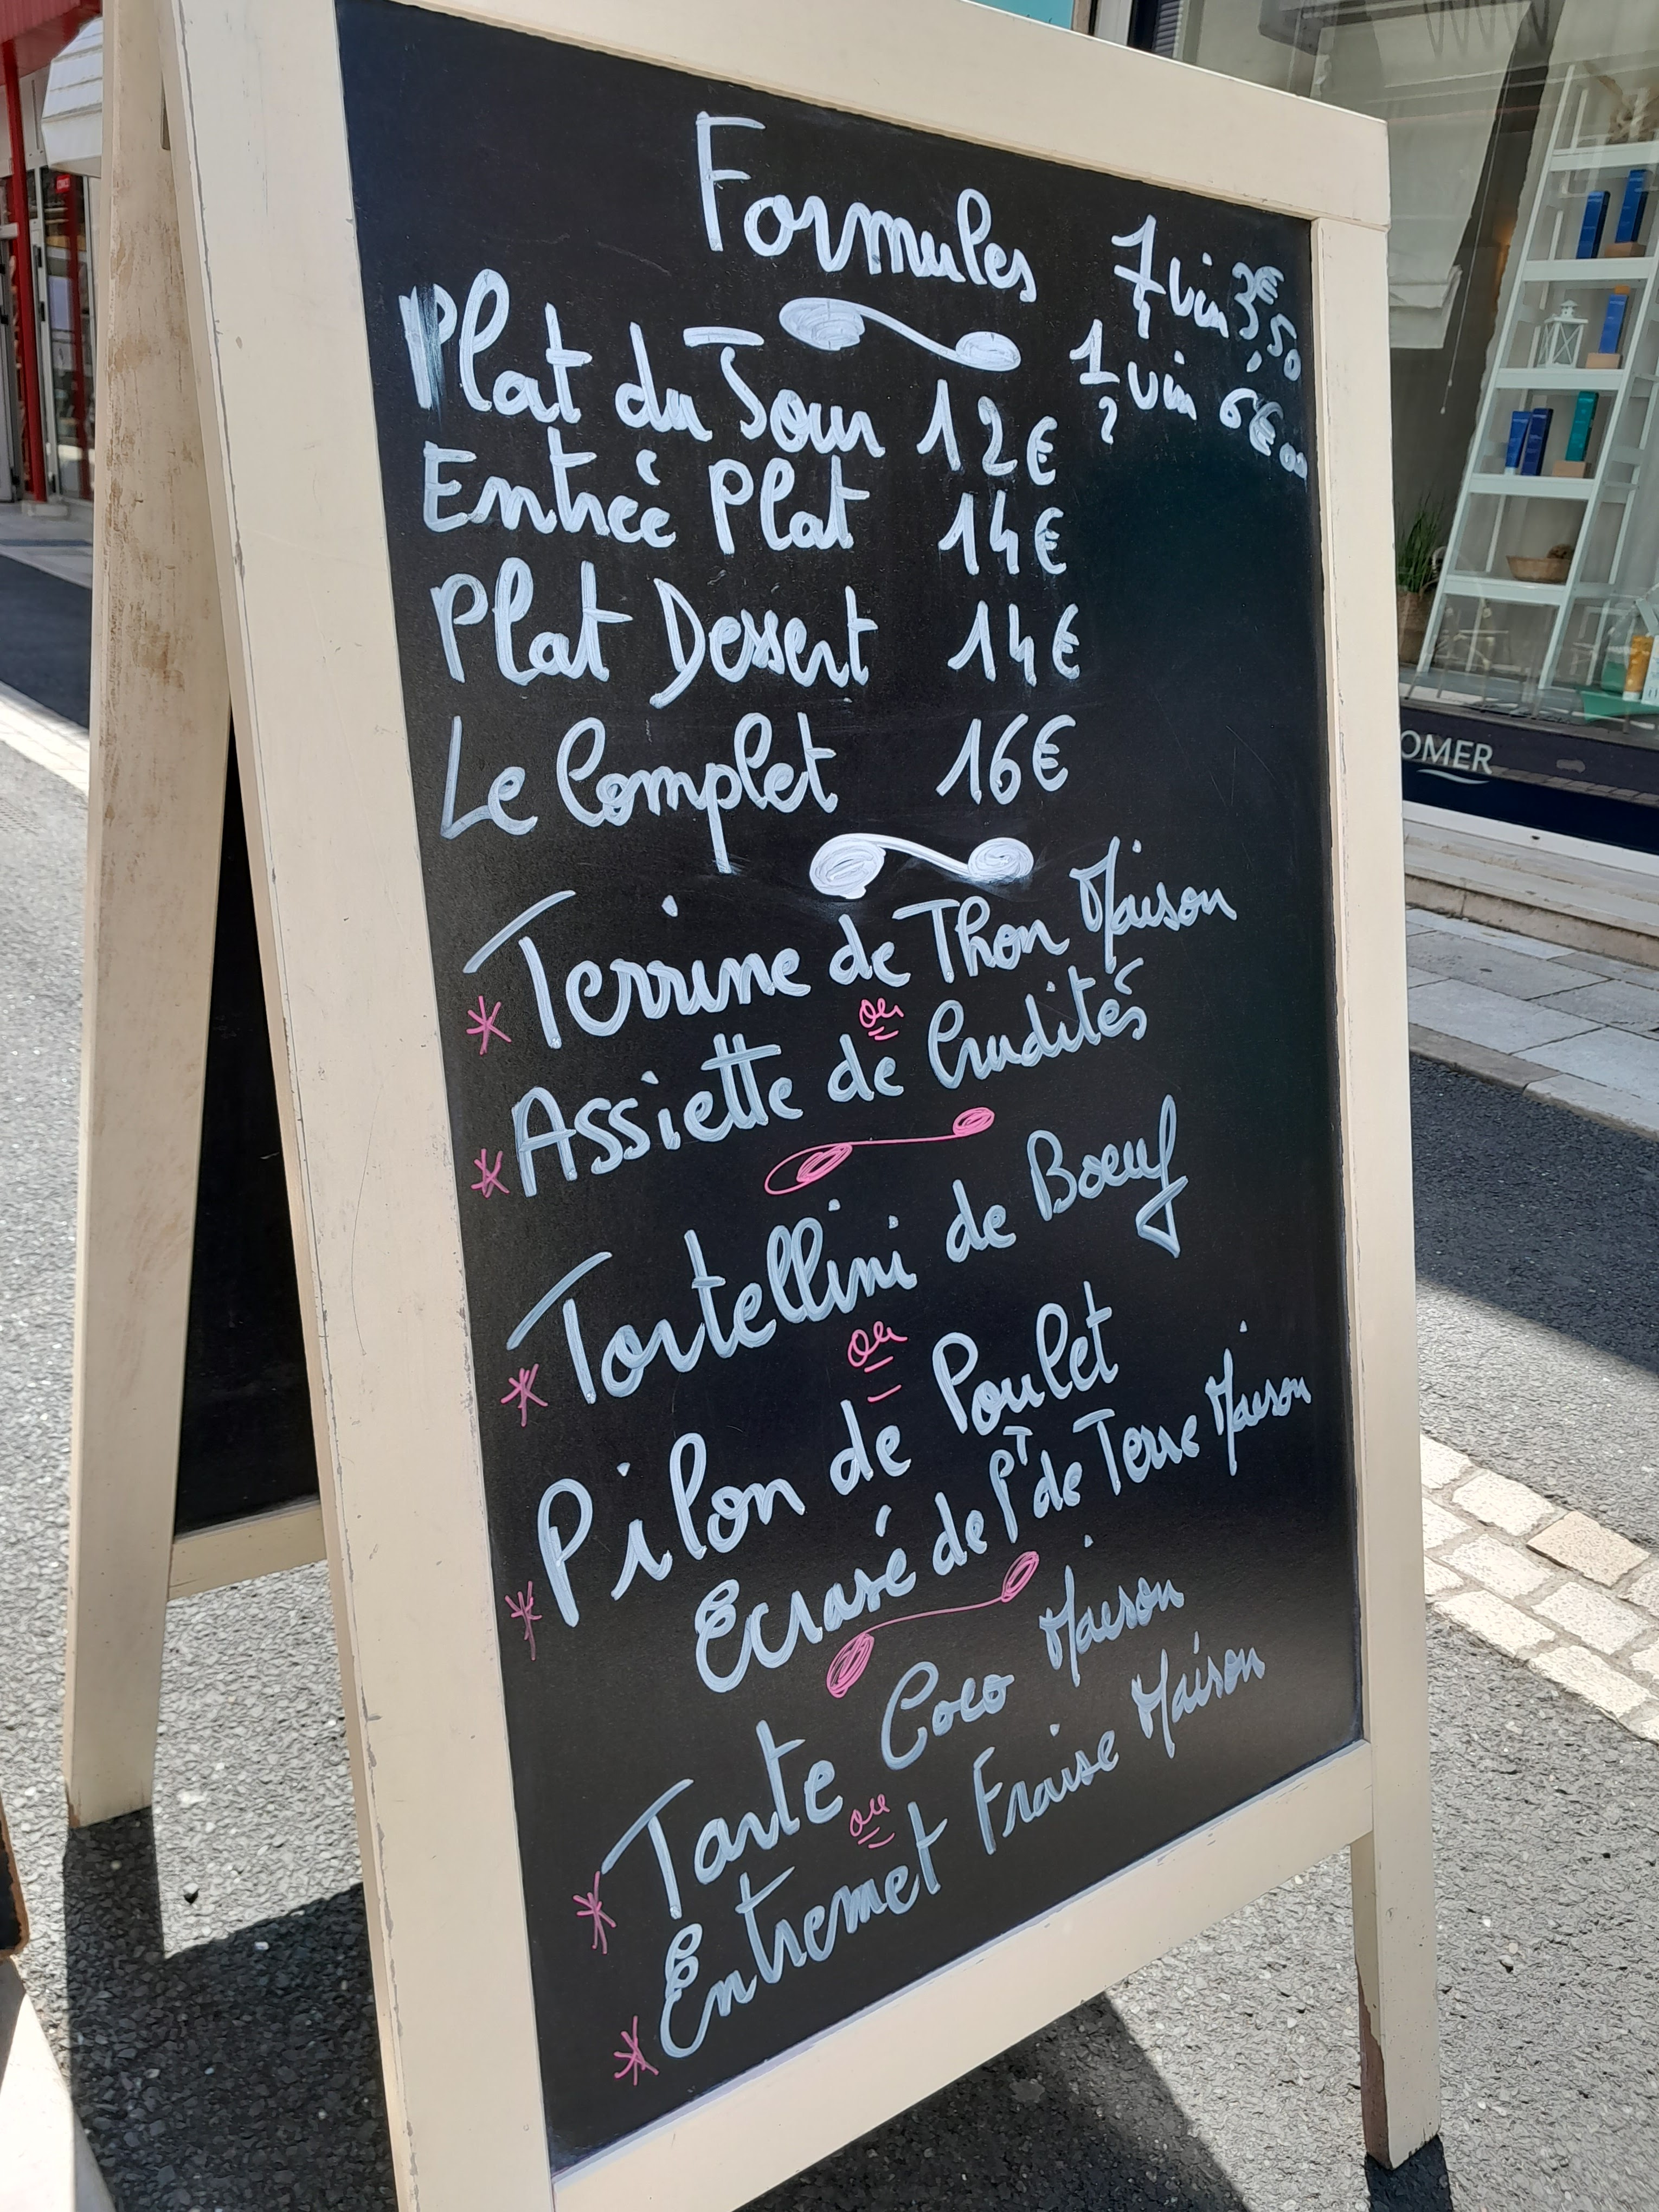 Formules
1/4 vin 3€,50
1/2 vin 6€00
Plat du Jour 12€
Entrée Plat 14€
Plat Dessert 14€
Le Complet 16€
* Terrine de Thon Maison
ou
* Assiette de Crudités
* Tortellini de Boeuf
ou
* Pilon de Poulet
Ecrasé de PT de Terre Maison
* Tarte Coco Maison
ou
* Entremet Fraise Maison
OMER